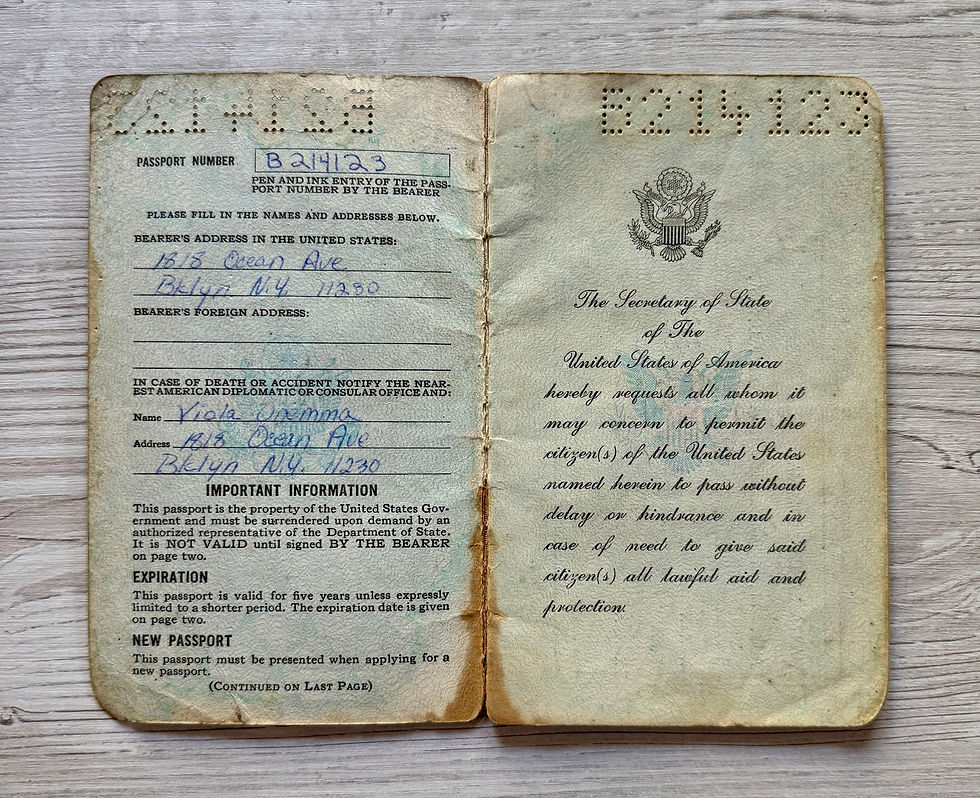 B214123
PASSPORT NUMBER B214123
PEN AND INK ENTRY OF THE PASS-
PORT NUMBER BY THE BEARER
PLEASE FILL IN THE NAMES AND ADDRESSES BELOW.
BEARER'S ADDRESS IN THE UNITED STATES:
1818 Ocean Ave
Bklyn N.Y. 11230
BEARER'S FOREIGN ADDRESS:
IN CASE OF DEATH OR ACCIDENT NOTIFY THE NEAR-
EST AMERICAN DIPLOMATIC OR CONSULAR OFFICE AND:
Name Viola
Address 1818 Ocean Ave
Bklyn N.Y. 11230
IMPORTANT INFORMATION
This passport is the property of the United States Gov-
ernment and must be surrendered upon demand by an
authorized representative of the Department of State.
It is NOT VALID until signed BY THE BEARER
on page two.
EXPIRATION
This passport is valid for five years unless expressly
limited to a shorter period. The expiration date is given
on page two.
NEW PASSPORT
This passport must be presented when applying for a
new passport.
(CONTINUED ON LAST PAGE)
B214123
The Secretary of State
of The
United States of America
hereby requests all whom it
may concern to permit the
citizen(s) of the United States
named herein to pass without
delay or hindrance and in
case of need to give said
citizen(s) all lawful aid and
protection.